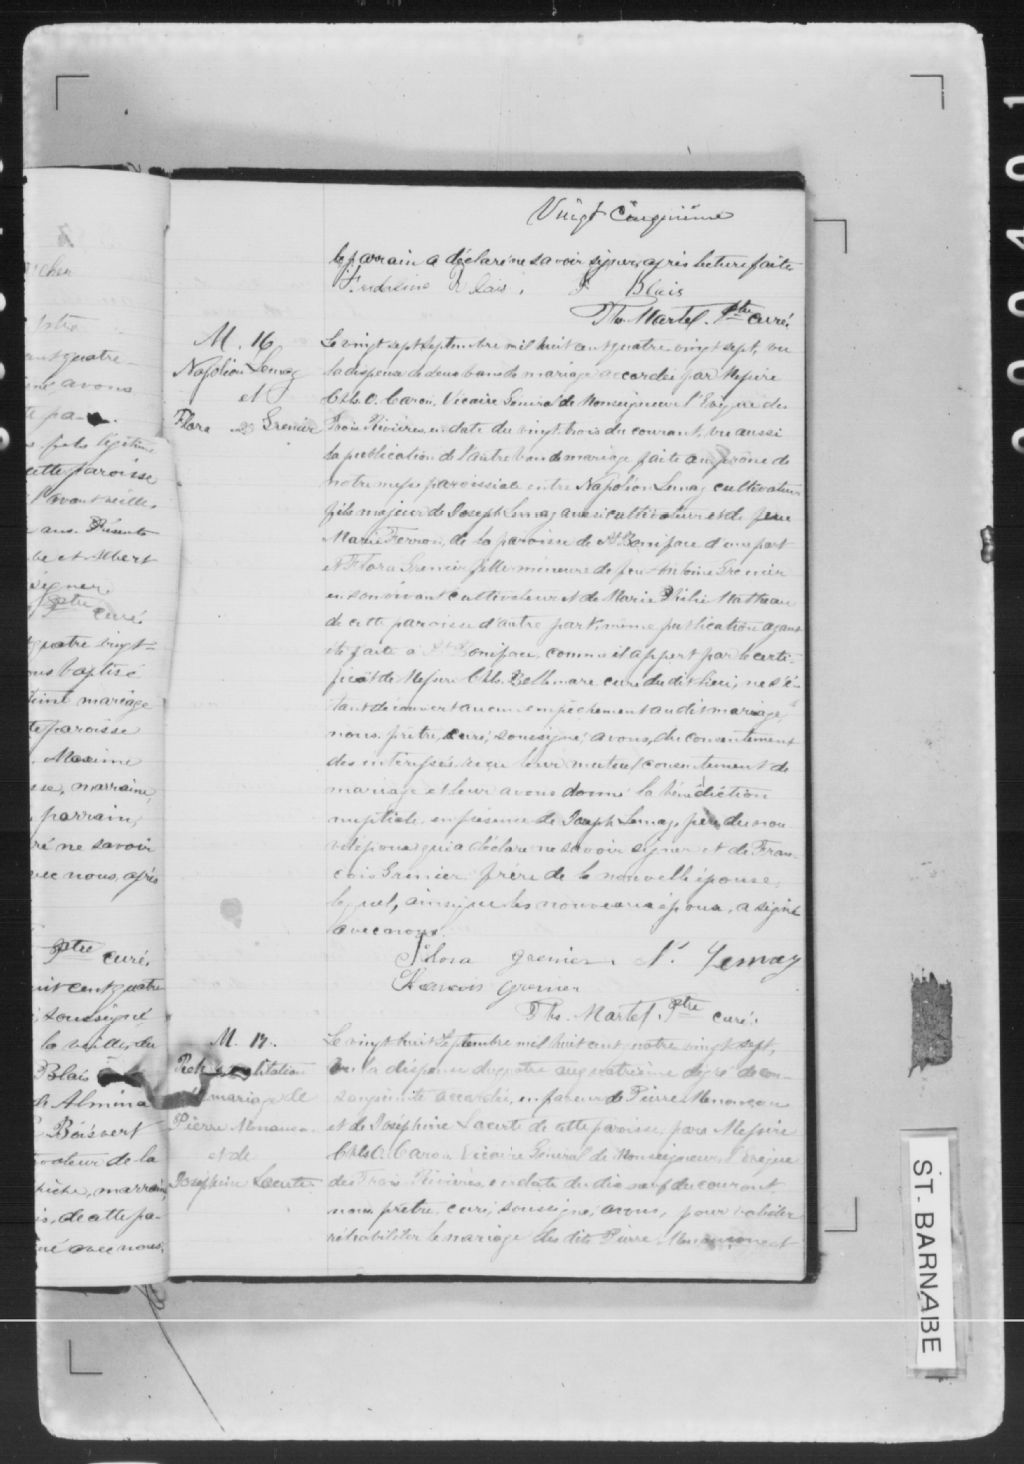 Vingt Cinquième
le parrain a déclaré ne savoir signer, après lecture faite
Blais
Ths. Martel. Ptre curé.
M. 16
Napoléon Lemay
et
Flora Grenier
Le vingt sept septembre mil huit cent quatre-vingt sept, vu
la dispense de deux bans de mariage accordée par Messire
Chls. O. Caron, Vicaire Général de Monseigneur l'Evêque des
Trois Rivières, en date du vingt-trois du courant, vu aussi
la publication de l'autre ban de mariage faite au prône de
notre messe paroissiale entre Napoléon Lemay cultivateur
fils majeur de Joseph Lemay aussi cultivateur et de feue
Marie Ferron, de la paroisse de St Boniface d'une part
et Flora Grenier fille mineure de feu Antoine Grenier
en son vivant cultivateur et de Marie Matteau
de cette paroisse d'autre part, même publication ayant
été faite à St Boniface comme il appert par le certi-
ficat de Messire Chls. Bellemare curé du dit lieu; ne s'é-
tant découvert aucun empêchement au dit mariage,
nous, prêtre, curé, soussigné, avons, du consentement
des intéressés reçu leur mutuel consentement de
mariage et leur avons donné la bénédiction
nuptiale, en présence de Joseph Lemay, père du nou-
vel époux qui a déclaré ne savoir signer et de Fran-
çois Grenier frère de la nouvelle épouse,
lequel, ainsi que les nouveaux époux, a signé
avec nous.
Flora grenier N. Lemay
francois grenier
Ths. Martel. Ptre curé.
M. 17.
Réhabilitation
de mariage de
Pierre
et de
Joséphine Lacerte
Le vingt huit Septembre mil huit cent quatre vingt sept,
vu la dispense du quatre au quatrième degré de con-
sanguinité accordée, en faveur de Pierre
et de Joséphine Lacerte de cette paroisse, par Messire
Chls O. Caron Vicaire Général de Monseigneur l'Evêque
des Trois Rivières, en date du dix neuf du courant
nous, prêtre, curé, soussigné, avons, pour valider
réhabiliter le mariage des dits Pierre
ant quatre-
avons
légitime
cette paroisse
l'avant-veille,
ans. Présents
et Albert
signer.
Ptre curé.
quatre vingt-
baptisé
mariage
paroisse
Maxime
marraine,
parrain,
ne savoir
avec nous, après
Ptre curé.
huit cent quatre
soussigné
la veille, du
Blais
Almina
Boisvert
cultivateur de la
marraine,
de cette pa-
avec nous.
ST. BARNABE